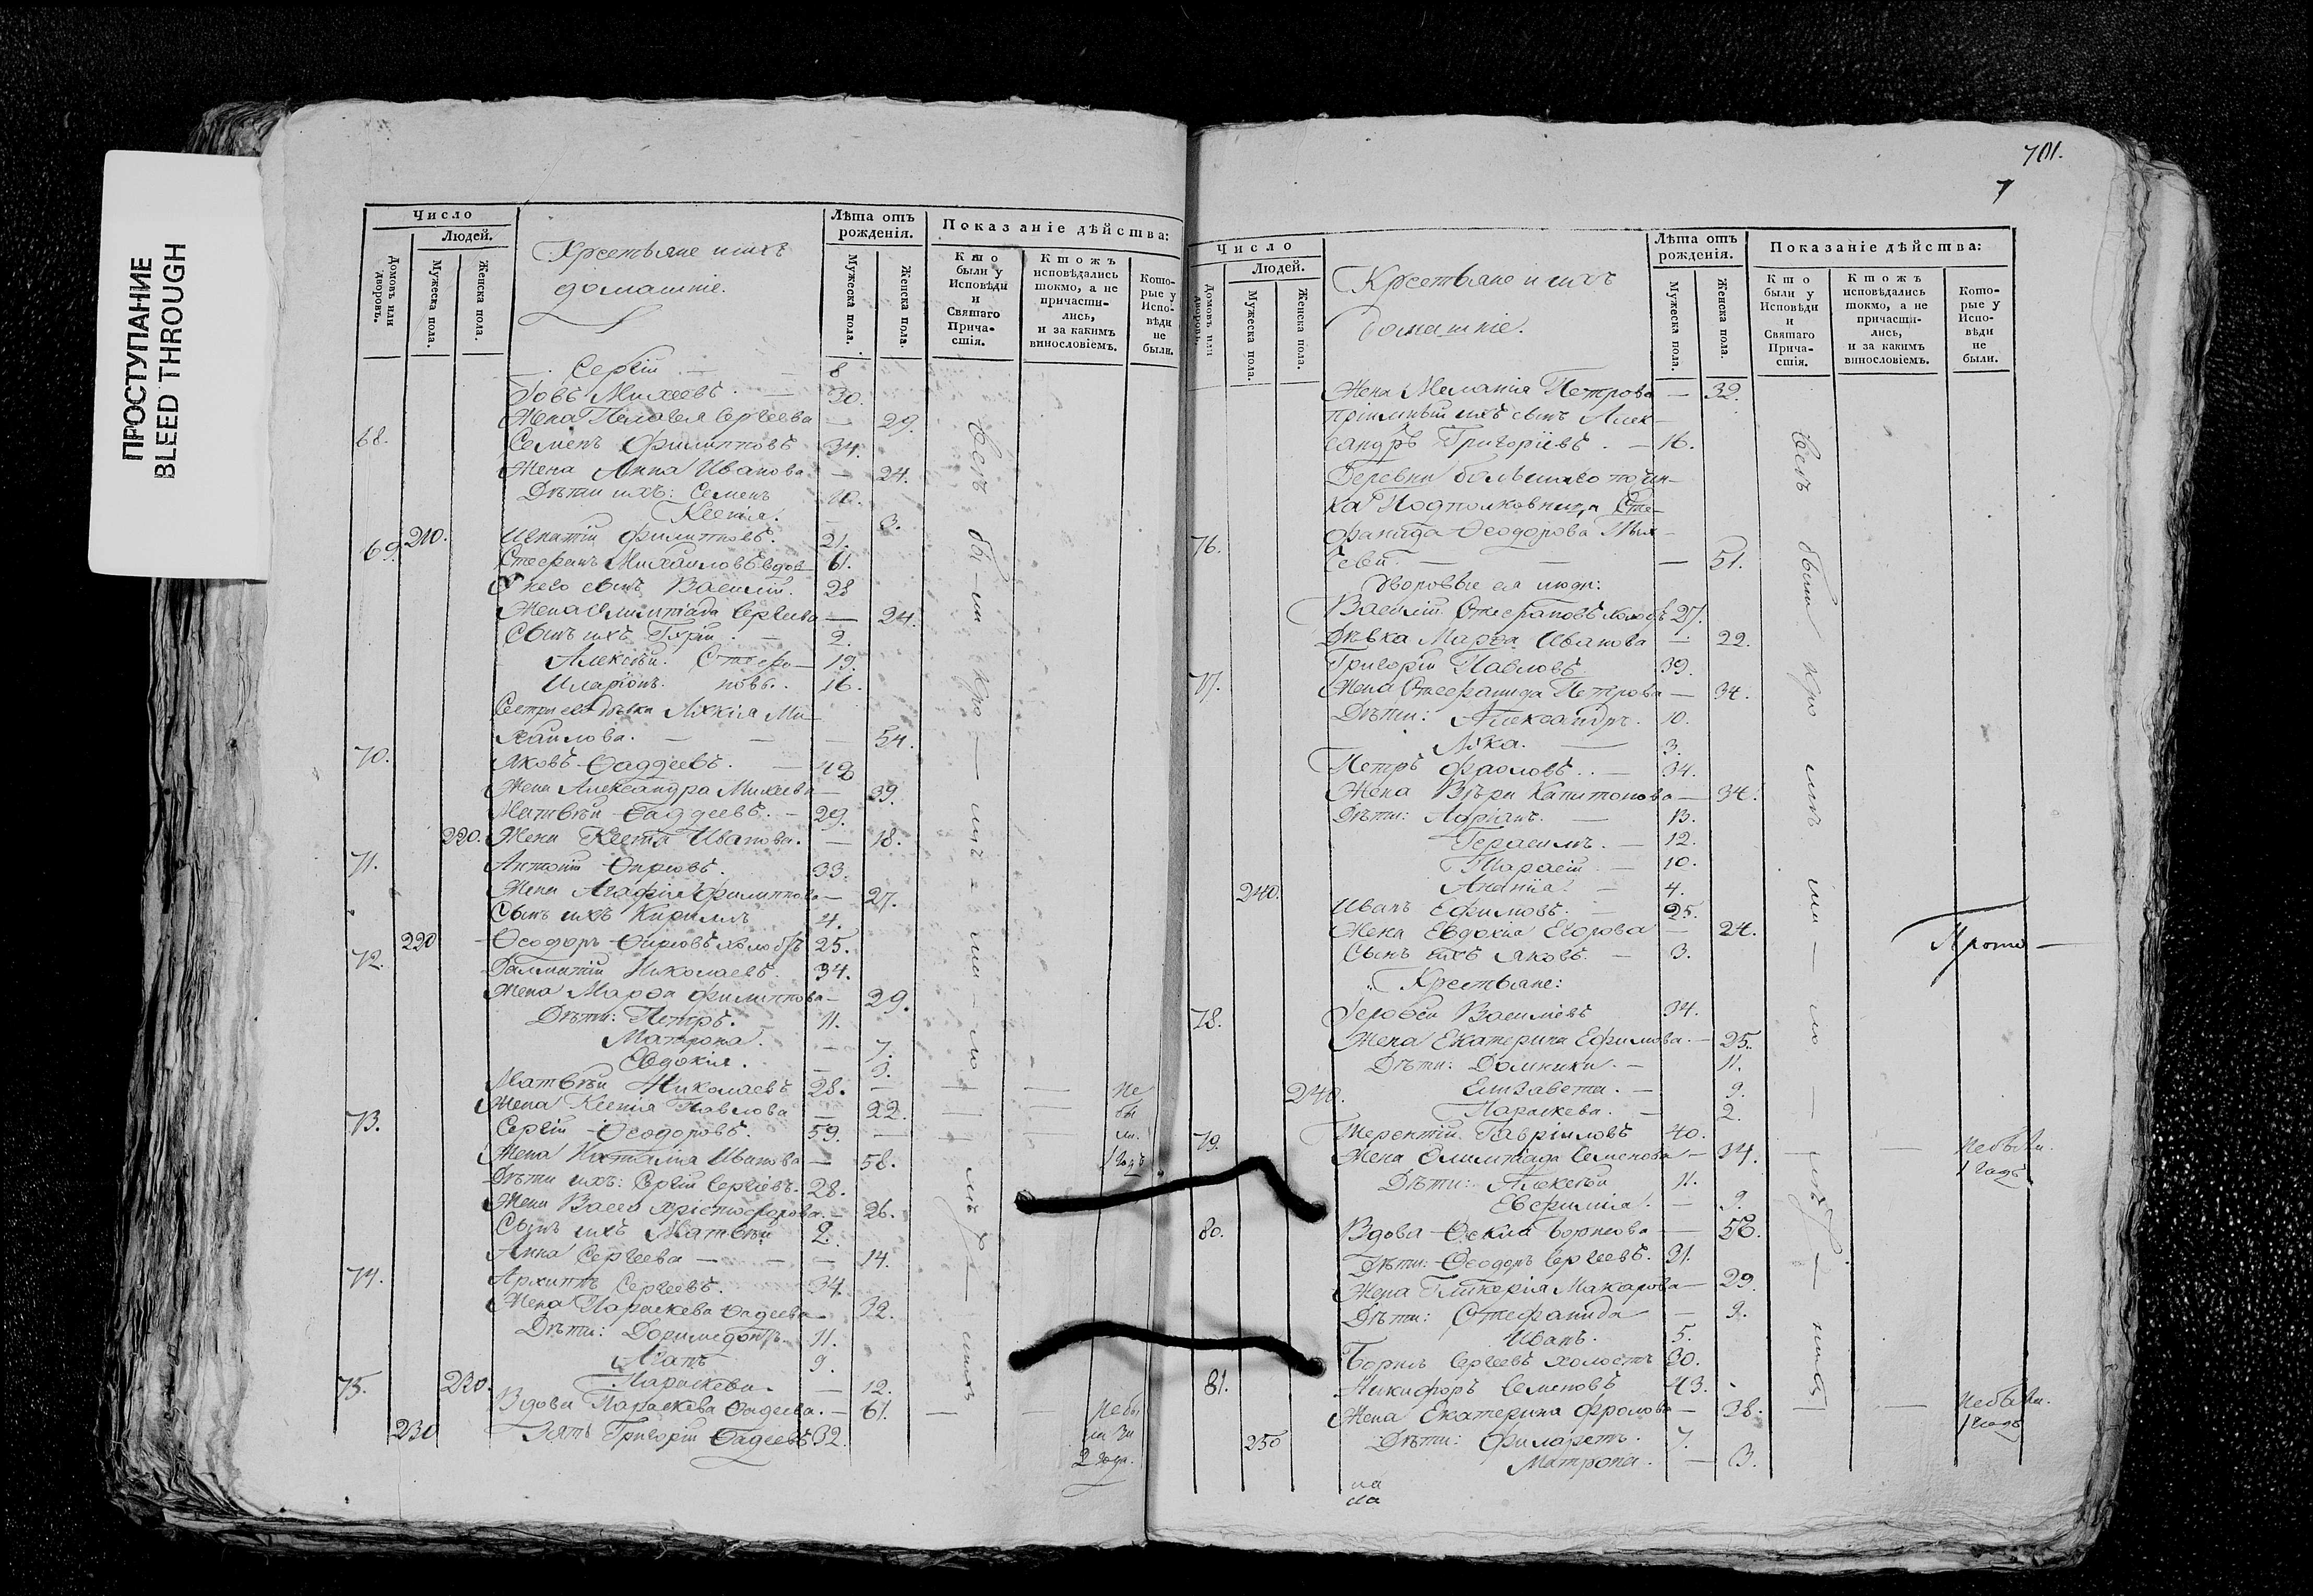 ПРОСТУПАНИЕ
BLEED THROUGH
Число
Людей.
Домовъ или дворовъ.
Мужеска пола.
Женска пола.
Крестьяне и ихъ
домашніе.
Лѣта отъ
рожденія.
Мужеска пола.
Женска пола.
Показаніе дѣйства:
Кто
были у
Исповѣди
и
Святаго
Прича-
стія.
Ктожъ
исповѣдались
токмо, а не
причасти-
лись,
и за какимъ
винословіемъ.
Кото-
рые у
Испо-
вѣди
не
были.
Сергій — 8
Іовъ Михеевъ. — 30.
Жена Пелагея Сергеева — 29.
68. Семенъ Филипповъ 34.
Жена Анна Иванова — 24.
Дѣти ихъ: Семенъ 10.
Ксенія. — 3.
210. Игнатій Филипповъ. 21.
69. Стефанъ Михаиловъ вдов 61.
У него сынъ Василій. 28
Жена Олимпіада Сергеева — 24.
Сынъ ихъ — 2.
Алексѣй. Стефа- 19.
Иларіонъ. новъ. 16.
Сестра его дѣвка Ми-
хаилова. — — — 54.
70. Яковъ Ѳаддеевъ. — 49
Жена Александра Михеева — 39.
Матвѣй Ѳаддеевъ. — 29.
220. Жена Ксенія Иванова. — 18.
71. Антоній 33.
Жена Агафія Филиппова — 27.
Сынъ ихъ Кириллъ 4.
220 Ѳеодоръ 25.
72. Николаевъ. 34.
Жена Марѳа Филиппова — 29.
Дѣти: Петръ. 11.
Матрона. — 7.
Евдокія. — 3.
Матвѣй Николаевъ 28. — Не
Жена Ксенія Павлова — 22. бы
73. Сергій Ѳеодоровъ. 59. — ли.
Жена Наталія Иванова — 58. 1 годъ
Дѣти ихъ: Сергій Сергіевъ. 28.
Жена Васса Христофорова. — 26.
Сынъ ихъ Матвѣй 2.
Анна Сергеева — — 14.
74. Архиппъ Сергеевъ. 34.
Жена Параскева Ѳадеева — 32.
Дѣти: Доримедонтъ. 11.
9.
230. Параскева. — 12.
75. Вдова Параскева Ѳадеева. — 61. — Не бы
230 Зять Григорій Ѳадеевъ 32. ли
2 года.
701.
7
Число
Людей.
Домовъ или дворовъ.
Мужеска пола.
Женска пола.
Крестьяне и ихъ
домашніе.
Лѣта отъ
рожденія.
Мужеска пола.
Женска пола.
Показаніе дѣйства:
Кто
были у
Исповѣди
и
Святаго
Прича-
стія.
Ктожъ
исповѣдались
токмо, а не
причасти-
лись,
и за какимъ
винословіемъ.
Кото-
рые у
Испо-
вѣди
не
были.
Жена Меланія Петрова — 32.
Пріимный ихъ сынъ Алек-
сандръ Григоріевъ. — 16.
Деревни большаго почин-
ка Подполковница Сте-
76. фанида Ѳеодорова
— — — 51.
Дворовые ея люди:
Василій Стефановъ холостъ 27.
Дѣвка Марѳа Иванова — 22.
Григорій Павловъ 39.
77. Жена Стефанида Петрова — 34.
Дѣти: Александръ. 10.
Лука. — 3.
Петръ Фроловъ. — 34.
Жена Вѣра Капитонова — 34.
Дѣти: Адріанъ. — 13.
Герасимъ. — 12.
Тарасій. — 10.
240. Ананія. — 4.
Иванъ Ефимовъ. — 25.
Жена Евдокія Егорова — 24.
Сынъ ихъ Яковъ. — 3.
Прото —
Крестьяне:
78. Василіевъ 34.
Жена Екатерина Ефимова. — 25.
Дѣти: Домника. — 11.
240. Елизавета. — 9.
Параскева. — 2.
79. Терентій Гавріиловъ 40.
Жена Олимпіада Семенова — 34. — — Не были.
1 годъ
Дѣти: Алексѣй 11.
Евфимія. — 9.
80. Вдова Ѳекла Борисова — 58.
Дѣти: Ѳеодоръ Сергеевъ. 31.
Жена Гликерія Макарова — 29.
Дѣти: Стефанида — 9.
Иванъ. 5.
Борисъ Сергеевъ холостъ 30.
81. Никифоръ Семеновъ 43.
Жена Екатерина Фролова — 38. — — Не были.
1 годъ
250 Дѣти: Филаретъ. 7.
Матрона. — 3.